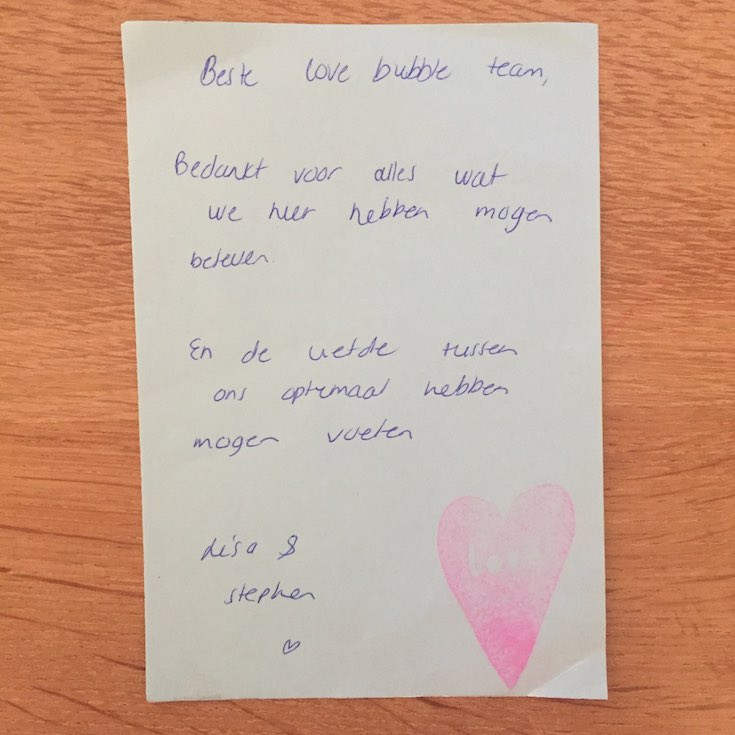 Beste love bubble team,
Bedankt voor alles wat
we hier hebben mogen
beleven.
En de liefde tussen
ons optimaal hebben
mogen voelen
Lisa &
stephen
Love